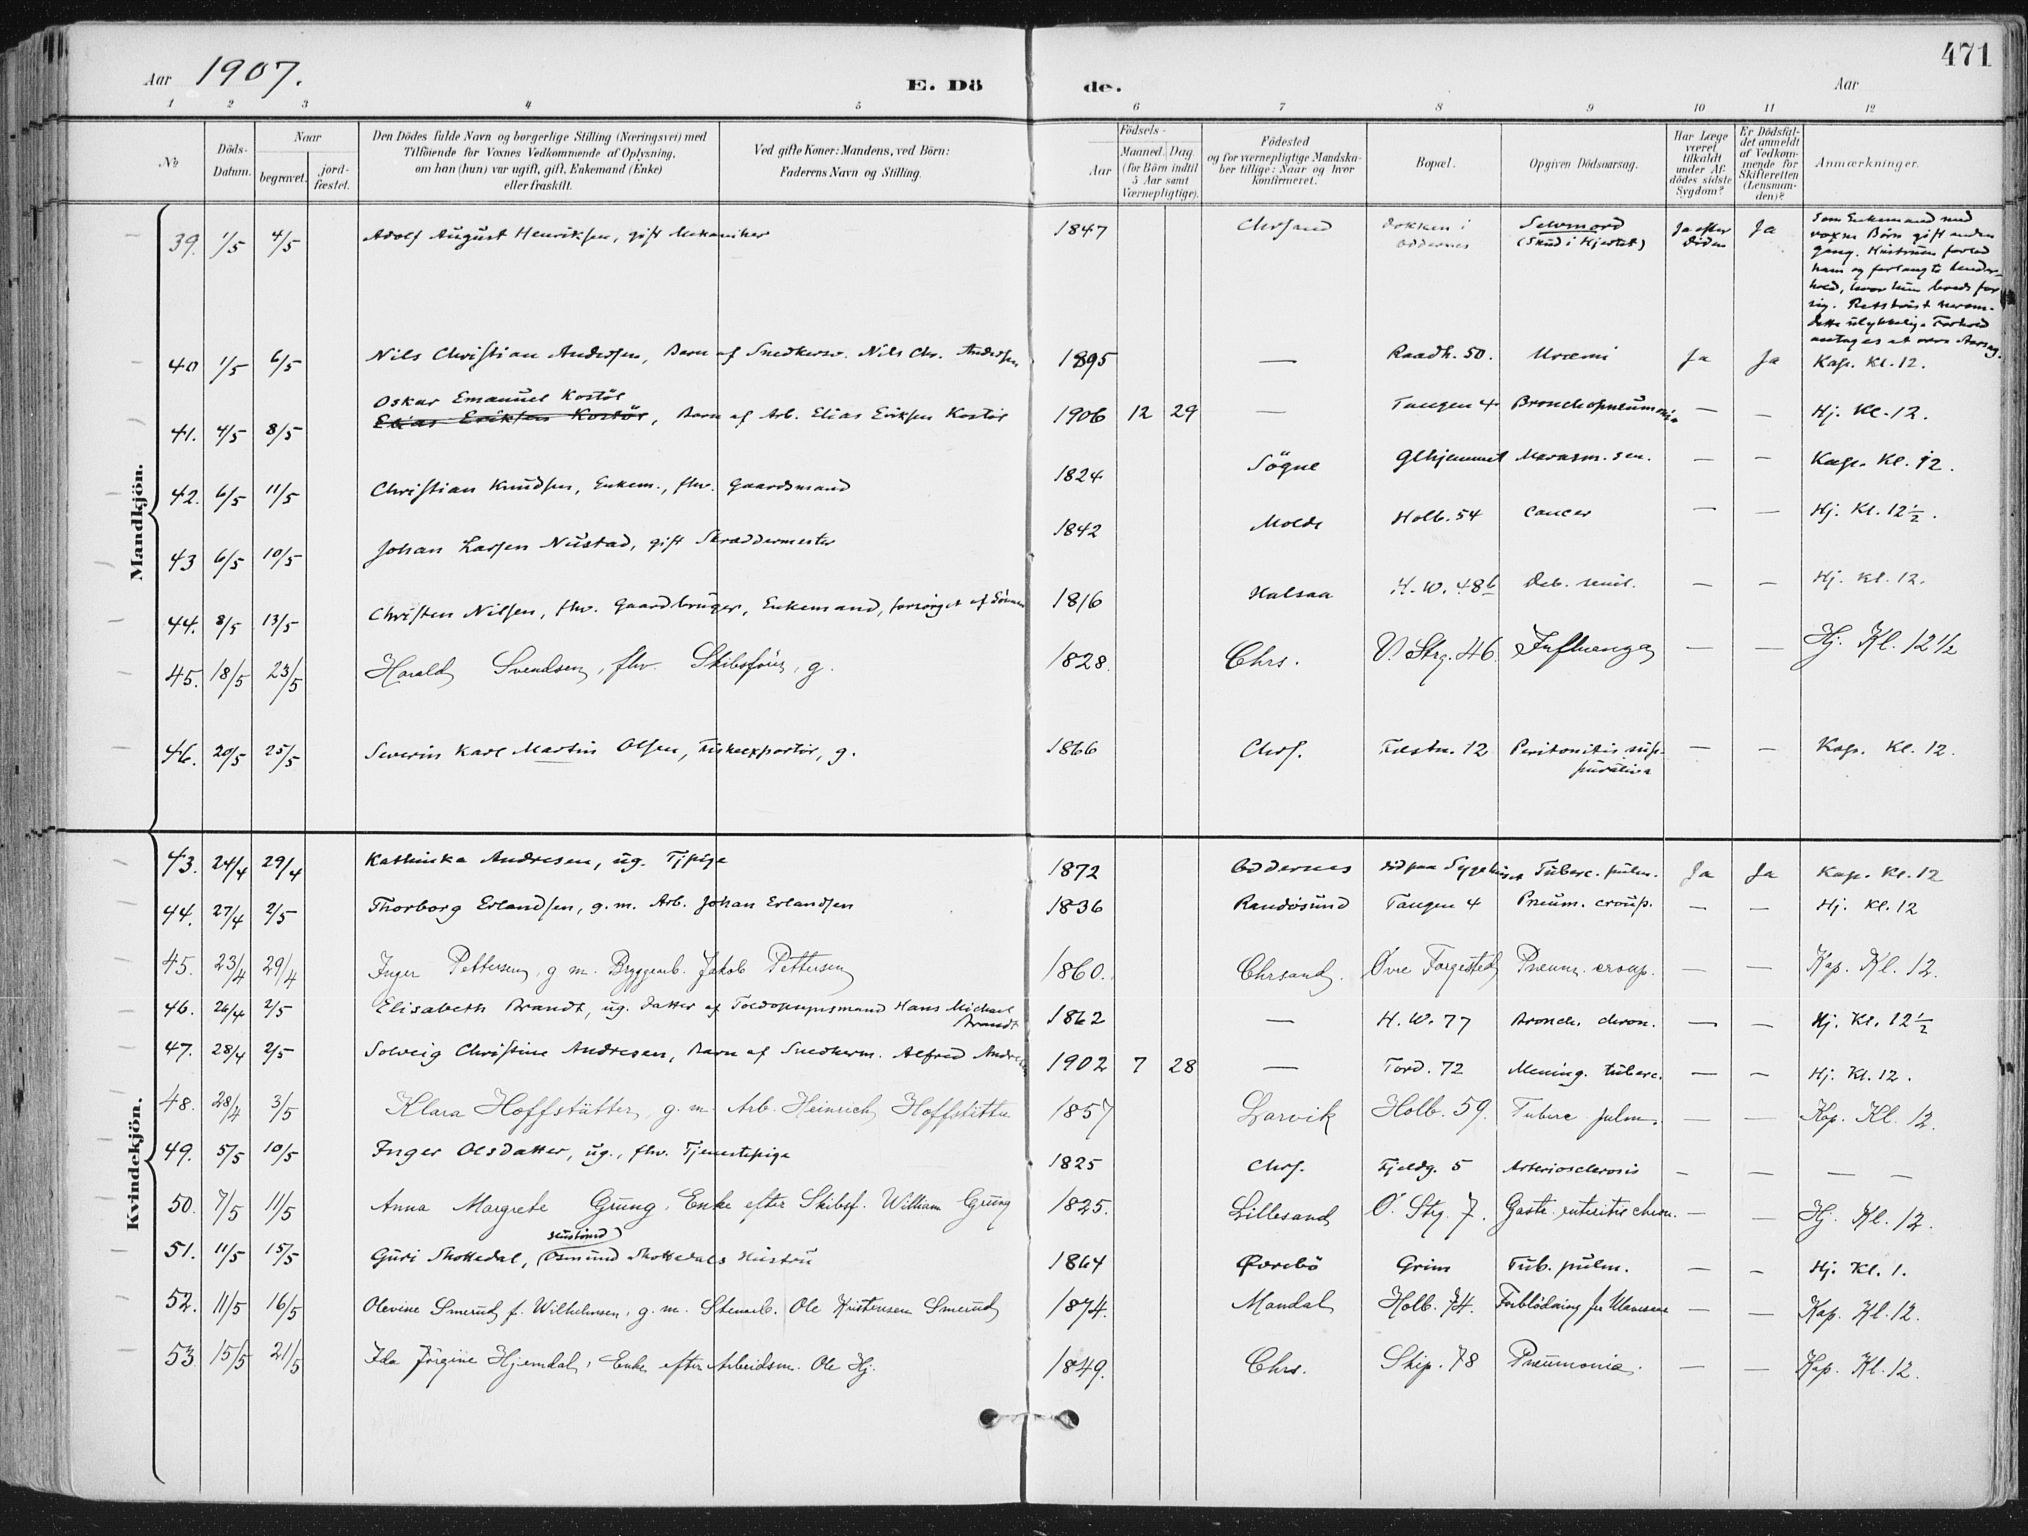 471
Aar 1907. E. Dö de. Aar
1 2 3 4 5 6 7 8 9 10 11 12
No
Döds-Datum.
Naar
begravet.
jord-fæstet.
Den Dödes fulde Navn og borgerlige Stilling (Næringsvei) med
Tilföiende for Voxnes Vedkommende af Oplysning,
om han (hun) var ugift, gift, Enkemand (Enke)
eller fraskilt.
Ved gifte Koner: Mandens, ved Börn:
Faderens Navn og Stilling.
Födsels-
Aar
Maaned. Dag.
(for Börn indtil
5 Aar samt
Værnepligtige).
Födested
og for værnepligtige Mandska-
ber tillige: Naar og hvor
Konfirmeret.
Bopæl.
Opgiven Dödsaarsag.
Har Læge
været
tilkaldt
under Af-
dödes sidste
Sygdom?
Er Dödsfal-
det anmeldt
af Vedkom-
mende for
Skifteretten
(Lensman-
den)?
Anmærkninger.
Mandkjön.
39. 1/5 4/5 Adolf August Henriksen, gift Mekaniker 1847 Chrsand Dokken i Oddernes Selvmord (Skud i Hjertet) Ja efter Döden Ja
Som Enkemand med
voxne Börn gift anden
gang. Hustruen forlod
ham og forlangte
hvor hun boede for
sig.
dette ulykkelige Forhold
antages at være Aarsag.
40 1/5 6/5 Nils Christian Andersen, Barn af Snedkersv. Nils Chr. Andersen 1895 — Raadh. 50. Uræmi Ja Ja Kap. Kl. 12.
Oskar Emanuel Kostöl
41. 4/5 8/5 Elias Eriksen Kostöl, Barn af Arb. Elias Eriksen Kostöl 1906 12 29 — Tangen 4 Bronchopneumonia — — Hj. Kl. 12.
42. 6/5 11/5 Christian Knudsen, Enkem., fhv. Gaardsmand 1824 Sögne Glhjemmet Marasm. sen. — — Kap. Kl. 12.
43 6/5 10/5 Johan Larsen Nustad, gift Skræddermester 1842 Molde Holb. 54 Cancer — — Hj. Kl. 12 1/2.
44. 8/5 13/5 Christen Nilsen, fhv. Gaardbruger, Enkemand, forsörget af Sönnen 1816 Halsaa H. W. 48b Deb. senil. — — Hj. Kl. 12.
45. 18/5 23/5 Harald Svendsen, fhv. Skibsförer, g. 1828. Chrs. V. Strg. 46. Influenza — — Hj. Kl. 12 1/2
46. 20/5 25/5 Severin Karl Martin Olsen, Fiskeexportör, g. 1866 Chrs. Festn. 12 Peritonitis sup-
purativa — — Kap. Kl. 12.
Kvindekjön.
43. 24/4 29/4 Kathinka Andresen, ug. Tjpige 1872 Oddernes död paa Sygehuset Tuberc. pulm. Ja Ja Kap. Kl. 12
44. 27/4 2/5 Thorborg Erlandsen, g. m. Arb. Johan Erlandsen 1836 Randösund Tangen 4 Pneum. croup. — — Hj. Kl. 12
45. 23/4 29/4 Inger Pettersen, g m. Bryggearb. Jakob Pettersen 1860. Chrsand. Övre Torgested Pneum. croup. — — Kap. Kl. 12.
46. 26/4 2/5 Elisabeth Brandt, ug. Datter af Toldopsynsmand Hans Michael
Brandt 1862 — H. W. 77 Bronch. chron. — — Hj. Kl. 12 1/2
47. 28/4 2/5 Solveig Christine Andresen, Barn af Snedkerm. Alfred Andresen 1902 7 28 — Tord. 72 Mening. tuberc. — — Hj. Kl. 12.
48. 28/4 3/5 Klara Hoffstätter, g. m. Arb. Heinrich Hoffstätter 1857 Larvik Holb. 59. Tuberc pulm. — — Kap. Kl. 12.
49. 5/5 10/5 Inger Olsdatter, ug., fhv. Tjenestepige 1825 Chrs. Fjeldg. 5 Arteriosclerosis — — — —
50. 7/5 11/5 Anna Margrete Grung, Enke efter Skibsf. William Grung 1825. Lillesand Ö. Strg. 7. Gastr. enteritis chron. — — Hj. Kl. 12.
51. 11/5 15/5 Guri Skottedal, Osmund Skottedals Hustru 1864 Övrebö Grim Tub. pulm. — — Hj. Kl. 1.
52. 11/5 16/5 Olevine Smerud f. Wilhelmsen, g. m. Stenarb. Ole Kristensen Smerud 1874. Mandal Holb. 74. Forblödning fr — — Kap. Kl. 12.
53 15/5 21/5 Ida Jörgine Hjemdal, Enke efter Arbeidsm. Ole Hj. 1849. Chrs. Skip. 78 Pneumonia. — — Kap. Kl. 12.